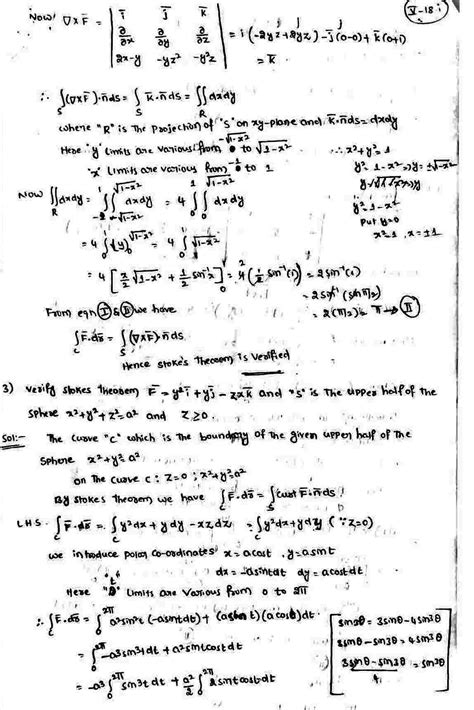 V-18
Now! ∇x F̄ = | ī j̄ k̄ |
| ∂/∂x ∂/∂y ∂/∂z | = i (-2yz+2yz) - j̄ (0-0) + k̄ (0+1)
| 2x-y -yz² -y²z | = k̄
∴ ∫_S (∇x F̄)·n̄ ds = ∫_S k̄·n̄ ds = ∬_R dxdy
where "R" is the projection of "S" on xy-plane and k̄·n̄ ds = dxdy
Here 'y' limits are various from -√1-x² to √1-x² ∴ x²+y²=1
'x' limits are various from -1 to 1 y²=1-x² => y=±√1-x²
Now ∬_R dxdy = ∫_{-1}^{1} ∫_{-√1-x²}^{√1-x²} dxdy = 4 ∫_0^1 ∫_0^{√1-x²} dxdy
y²=1-x²
Put y=0
x²=1, x=±1
= 4 ∫_0^1 (y)_0^{√1-x²} = 4 ∫_0^1 √1-x²
= 4 [x/2 √1-x² + 1/2 sin⁻¹x]_0^1 = 4 (1/2 sin⁻¹(1)) = 2 sin⁻¹(1)
= 2 sin⁻¹ (sin π/2)
= 2(π/2) = π → II
From eqn I & II we have
∫_C F̄·dr̄ = ∫_S (∇x F̄)·n̄ ds
Hence stoke's theorem is verified
3) verify stokes theorem F̄ = y²ī + yj̄ - zxk̄ and "S" is the upper half of the
sphere x²+y²+z²=a² and z≥0.
Sol:- The curve "C" which is the boundary of the given upper half of the
sphere x²+y²=a²
on the curve c: z=0; x²+y²=a²
By stokes theorem we have ∫_C F̄·dr̄ = ∫_S curl F̄·n̄ ds
LHS ∫_C F̄·dr̄ = ∫_C y²dx + y dy - xz dz = ∫_C y²dx + y dy (∵ z=0)
we introduce polar co-ordinates x = a cost, y = a sint
dx = -a sint dt dy = a cost dt
Here "t" limits are various from 0 to 2π
∴ ∫_C F̄·dr̄ = ∫_0^{2π} a² sin²t (-a sint dt) + (a sin t)(a cost) dt.
sin3θ = 3sinθ - 4sin³θ
= ∫_0^{2π} -a³ sin³t dt + a² sint cost dt
3sinθ - sin3θ = 4sin³θ
= -a³ ∫_0^{2π} sin³t dt + a²/2 ∫_0^{2π} 2 sint cost dt
3sinθ - sin3θ / 4 = sin³θ